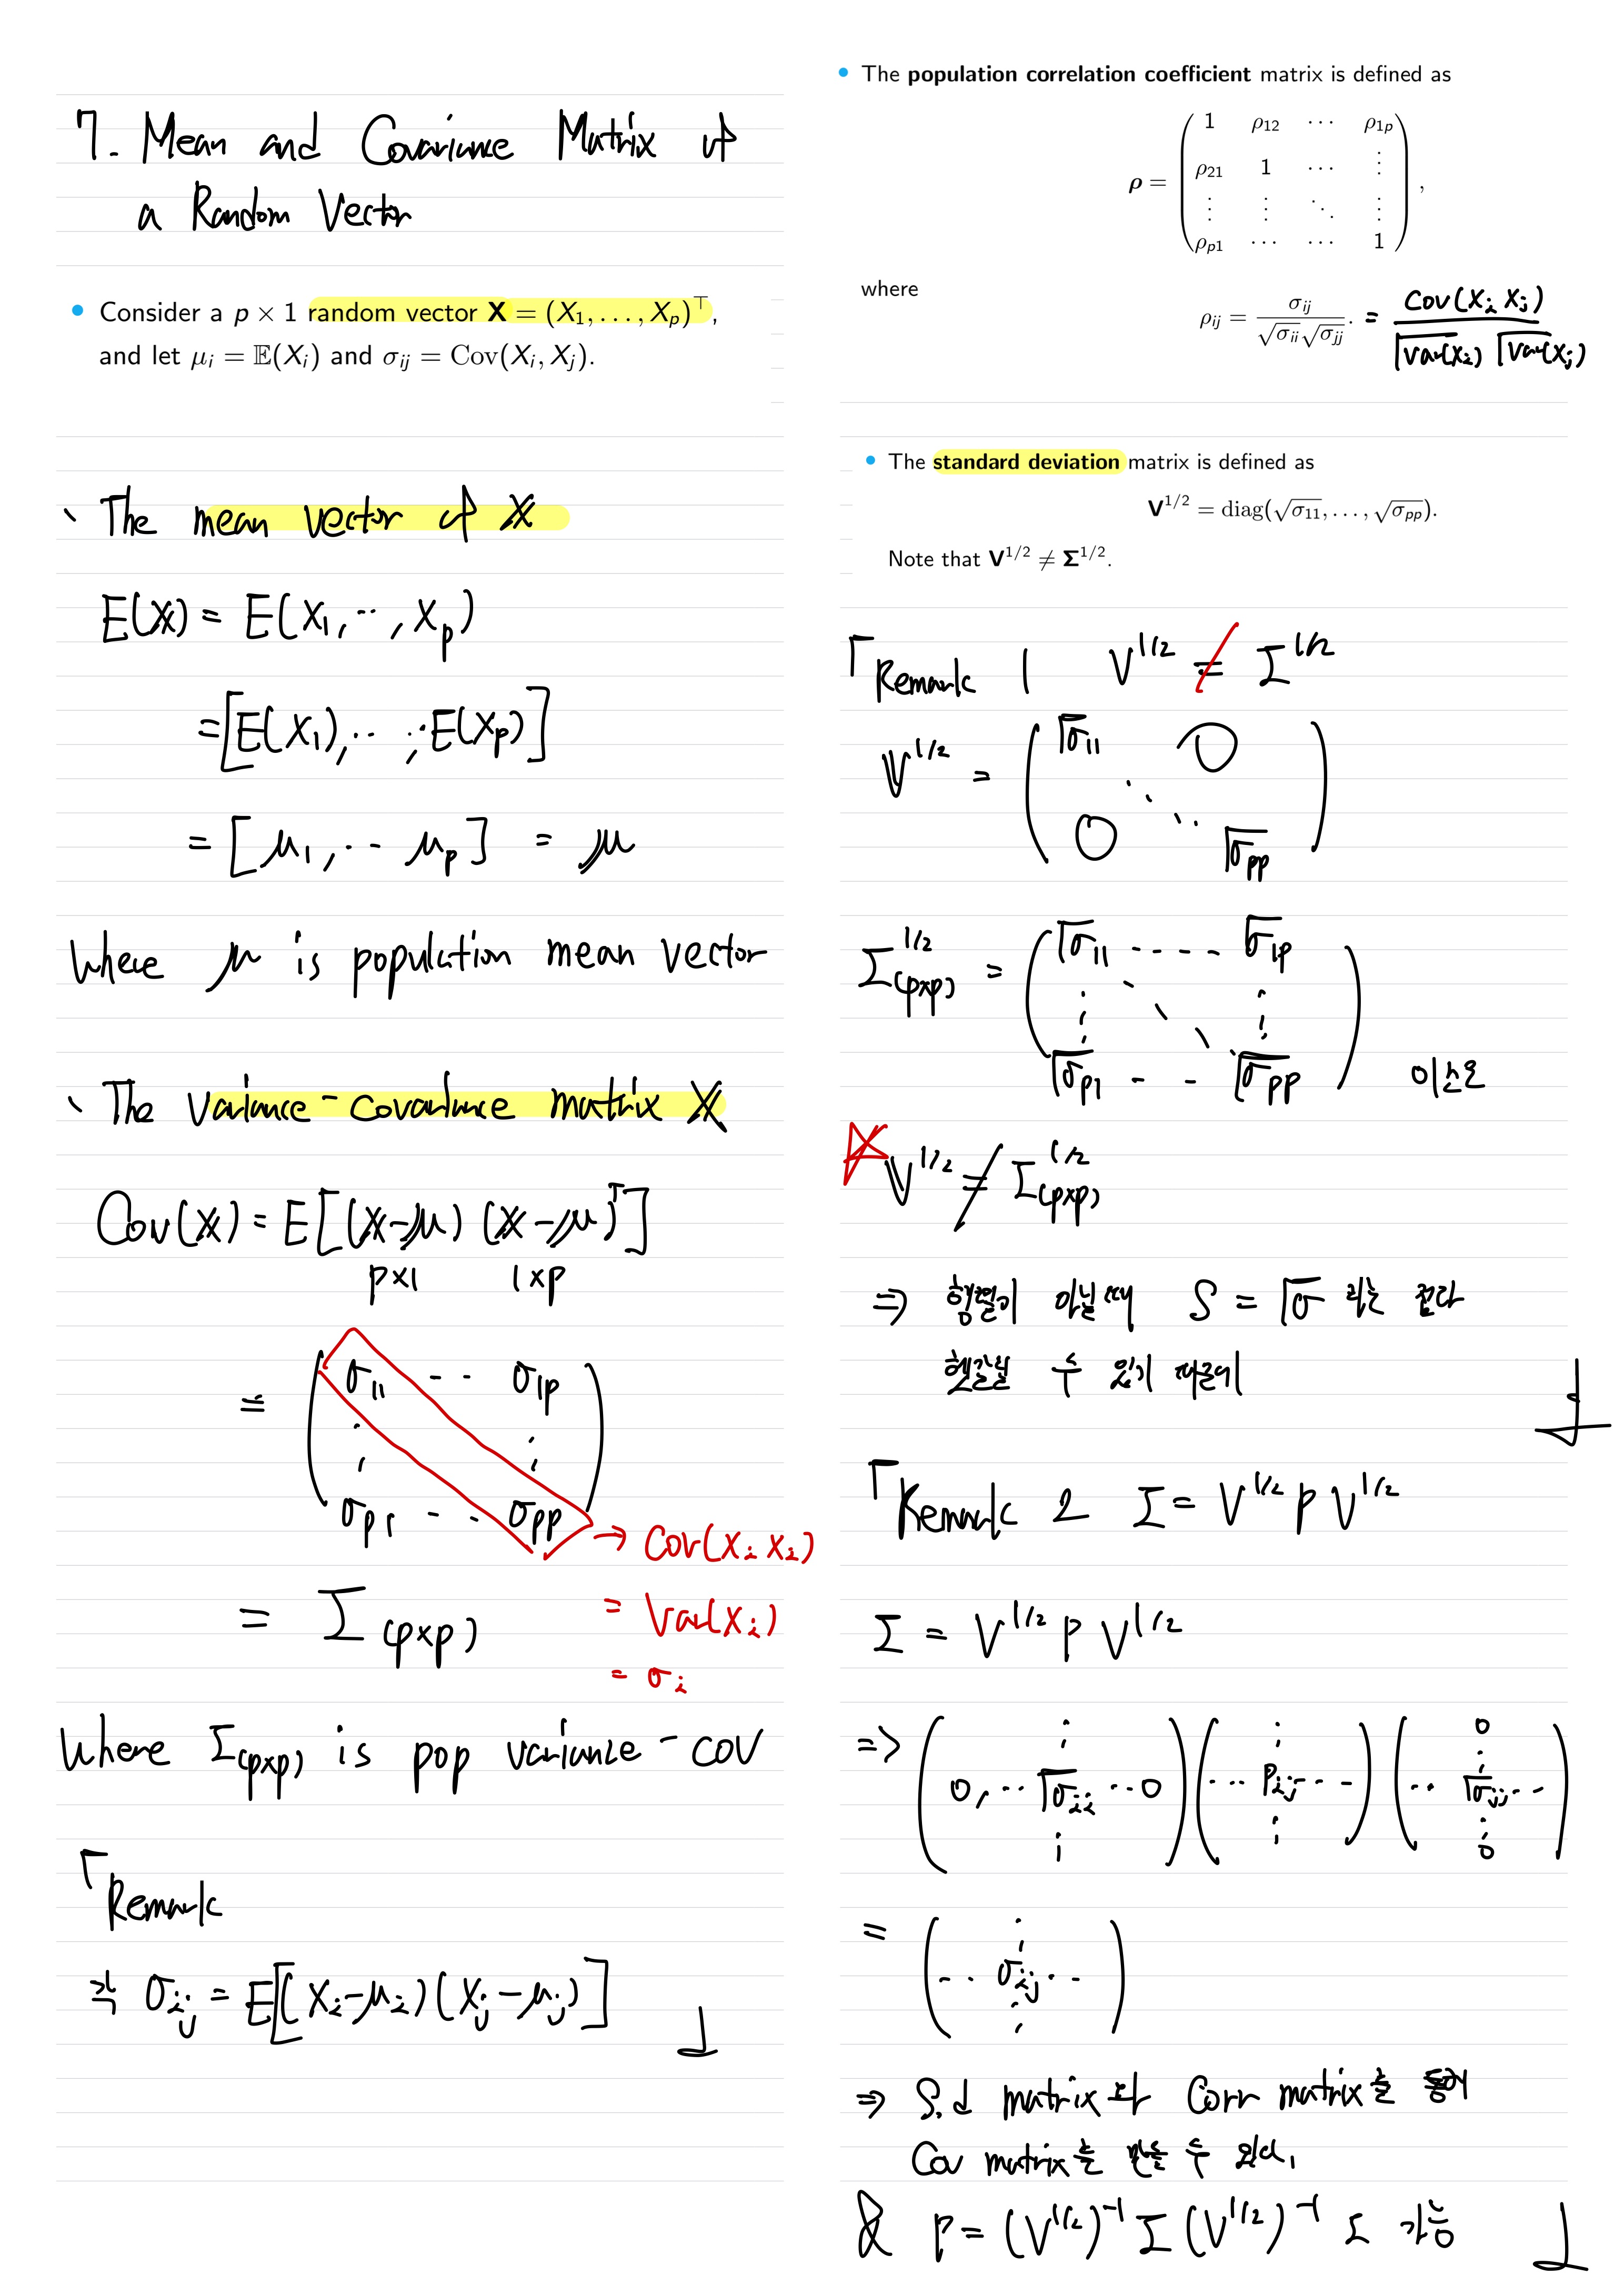 7. Mean and Covariance Matrix of
a Random Vector
• Consider a p × 1 random vector X = (X₁, . . . , Xₚ)ᵀ,
and let μᵢ = 𝔼(Xᵢ) and σᵢⱼ = Cov(Xᵢ, Xⱼ).
The mean vector of X
E(X) = E(X₁, ⋯, Xₚ)
= [E(X₁), ⋯ , E(Xₚ)]
= [μ₁, ⋯ μₚ] = μ
where μ is population mean vector
The variance-covariance matrix X
Cov(X) = E[(X-μ)(X-μ)ᵀ]
p×1 1×p
= ( σ₁₁ -- σ₁ₚ
⋮ ⋮
σₚ₁ -- σₚₚ ) → Cov(Xᵢ Xᵢ)
= Σ (p×p) = Var(Xᵢ)
= σᵢ
where Σ(p×p) is pop variance-cov
「Remark
σᵢⱼ = E[(Xᵢ-μᵢ)(Xⱼ-μⱼ)] 」
• The population correlation coefficient matrix is defined as
ρ = ( 1 ρ₁₂ ⋯ ρ₁ₚ
ρ₂₁ 1 ⋯ ⋮
⋮ ⋮ ⋱ ⋮
ρₚ₁ ⋯ ⋯ 1 ) ,
where
ρᵢⱼ = σᵢⱼ / √σᵢᵢ√σⱼⱼ . = Cov(Xᵢ Xⱼ) / √Var(Xᵢ) √Var(Xⱼ)
• The standard deviation matrix is defined as
V^1/2 = diag(√σ₁₁, . . . , √σₚₚ).
Note that V^1/2 ≠ Σ^1/2.
「Remark 1 V^1/2 ≠ Σ^1/2
V^1/2 = ( √σ₁₁ 0
⋱
0 √σₚₚ )
Σ^1/2 (p×p) = ( √σ₁₁ ---- √σ₁ₚ
⋮ ⋱ ⋮
√σₚ₁ -- √σₚₚ ) 이므로
☆ V^1/2 ≠ Σ^1/2 (p×p)
⇒ 행렬이 아닐때 S = √σ 라는
수 있기 때문에 」
「Remark 2 Σ = V^1/2 ρ V^1/2
Σ = V^1/2 ρ V^1/2
=> ( 0, ⋯ √σᵢᵢ ⋯ 0 ) ( ⋯ ρᵢⱼ ⋯ ) ( 0 ⋯ √σⱼⱼ ⋯ 0 )
= ( ⋯ σᵢⱼ ⋯ )
⇒ S.d matrix와 Corr matrix를 통해
Cov matrix를 만들 수 있다.
& ρ = (V^1/2)^-1 Σ (V^1/2)^-1 도 가능 」